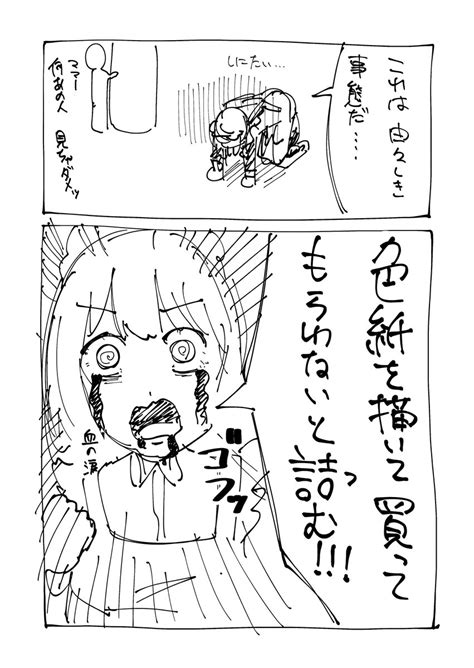 これは由々しき
事態だ・・・・
しにたい・・・
ママー
何あの人
見ちゃダメッ
色紙を描いて買って
もらわないと詰む!!!
っ
ゴフッ
血の涙